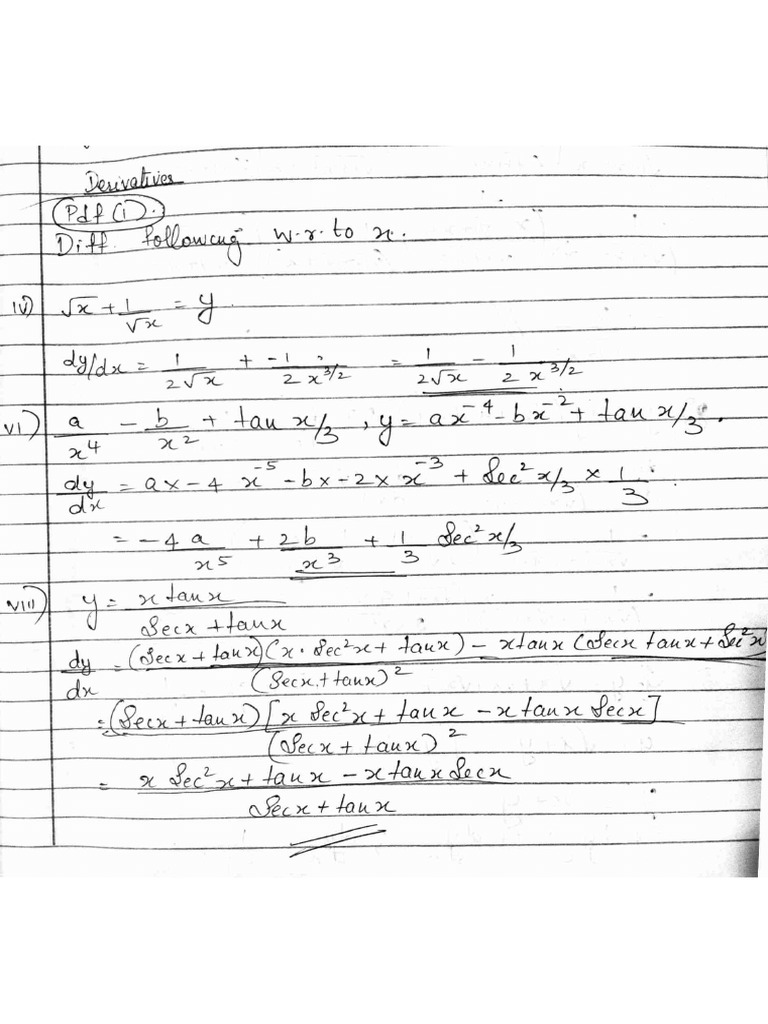 Derivatives
Pdf (i).
Diff. following w.r.to x.
iv) √x + 1/√x = y
dy/dx = 1/2√x + -1/2 x^3/2 = 1/2√x - 1/2 x^3/2
vi) a/x^4 - b/x^2 + tan x/3, y = ax^-4 - bx^-2 + tan x/3.
dy/dx = a x -4 x^-5 - b x -2 x x^-3 + Sec^2 x/3 × 1/3.
= -4 a/x^5 + 2b/x^3 + 1/3 Sec^2 x/3
viii) y = x tanx / Secx + tanx
dy/dx = (Secx + tanx)(x · Sec^2 x + tanx) - x tanx (Secx tanx + Sec^2 x / (Secx + tanx)^2
= (Secx + tanx) [x Sec^2 x + tanx - x tanx Secx] / (Secx + tanx)^2
= x Sec^2 x + tanx - x tanx Secx / Secx + tanx